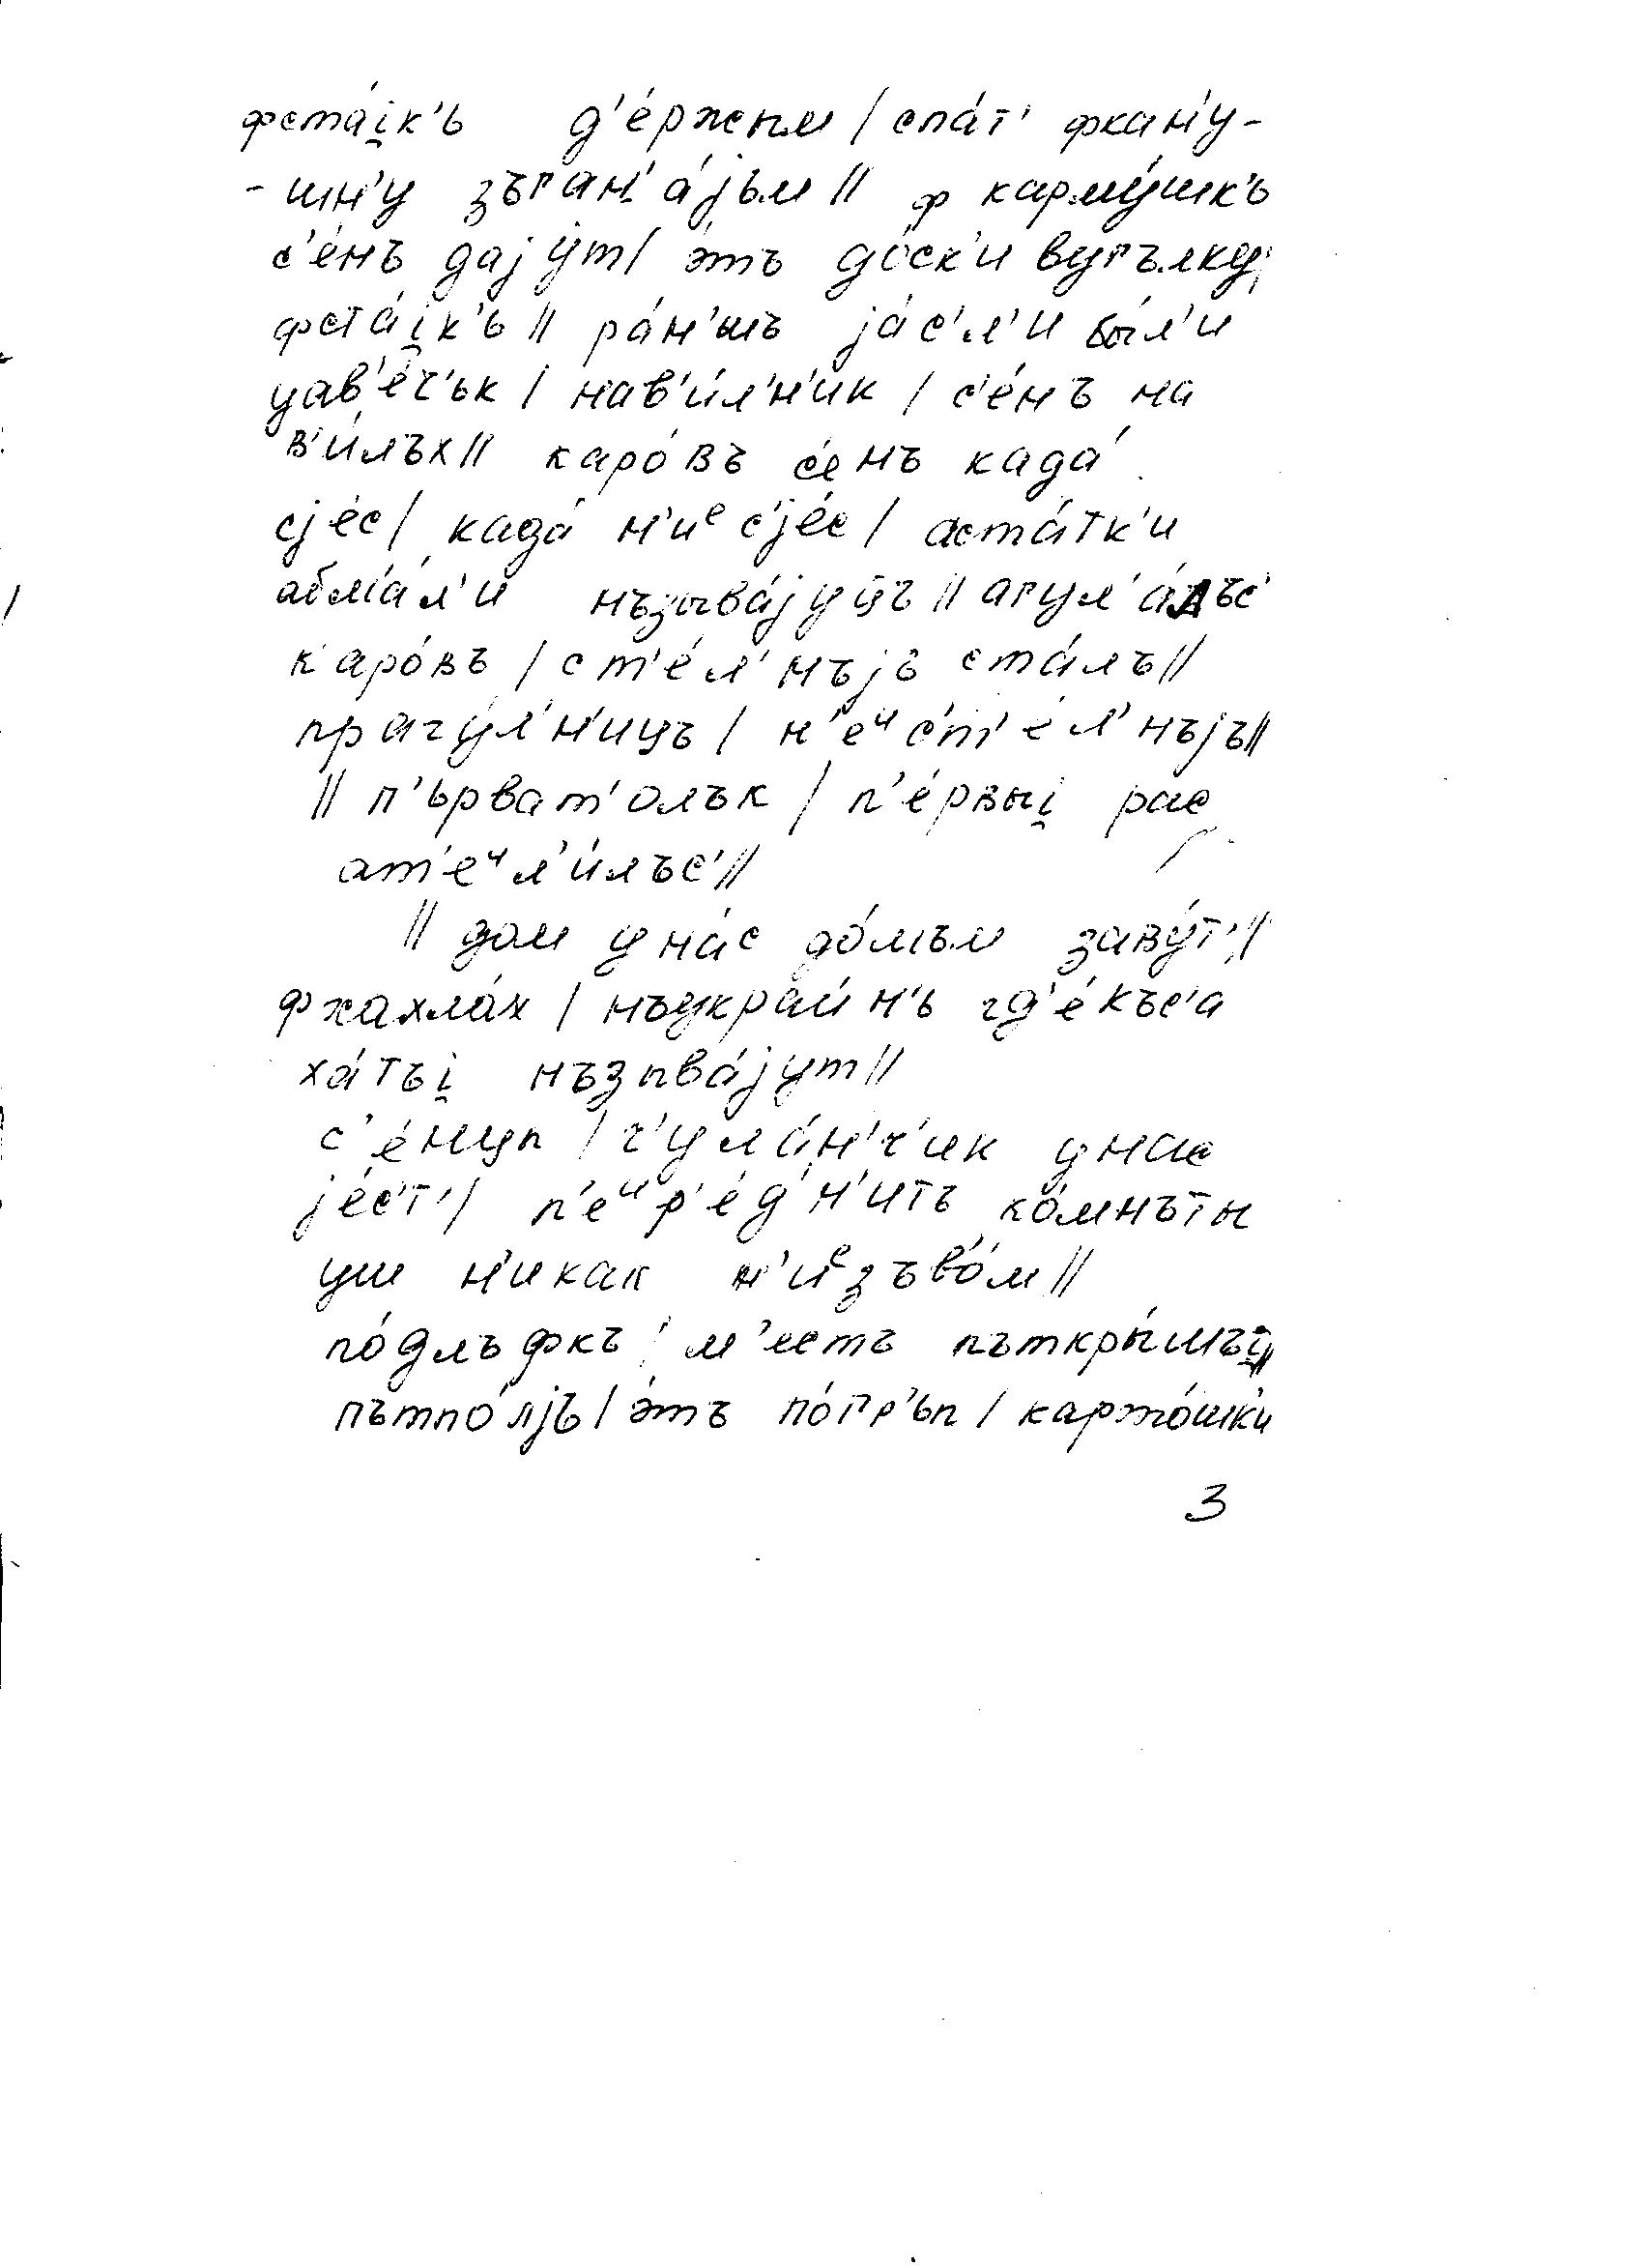 фста́i̯к'ь д'е́ржъм / спа́т' фкан'у́-
- шн'у зъган'а́јьм // ф карму́шк'ь
с'е́нъ дају́т / э́тъ до́ск'и вугълку́ /
фста́i̯к'ь // ра́н'шъ јáс'л'и бы́л'и
уав'е́ч'ьк / нав'и́л'н'ик / с'е́нъ на
в'и́лъх // каро́въ с'е́нъ када́
сје́с / када́ н'иᵉ с'је́с / аста́тк'и
абм'а́л'и нъзыва́јуцъ // агул'а́лъс'
каро́въ / ст'е́л'нъјь ста́лъ //
прагу́л'н'ицъ / н'еᶦс'т'е́л'нъјъ //
// п'ърват'олък / п'е́рвыi̯ рас
ат'еᶦл'и́лъс' //
// дом у на́с до́мъм заву́т' //
ф хахла́х / нъукраи́н'ь гд'е́къс'а
ха́тъi̯ нъзыва́јут //
с'е́нцы / ч'ула́н'ч'ик унас
је́с'т' / п'еᶦр'е́д'н'итъ ко́мнъты
уш н'икак н'иᵉзъво́м //
по́длъфкъ / м'естъ пъткры́шъi̯ //
пътпо́лјъ / э́тъ по́гр'ьп / карто́шк'и
3